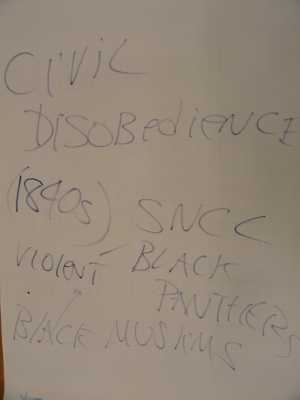 CIVIL
DISOBEDIENCE
(1840s) SNCC
VIOLENT BLACK
PANTHERS
BLACK MUSLIMS